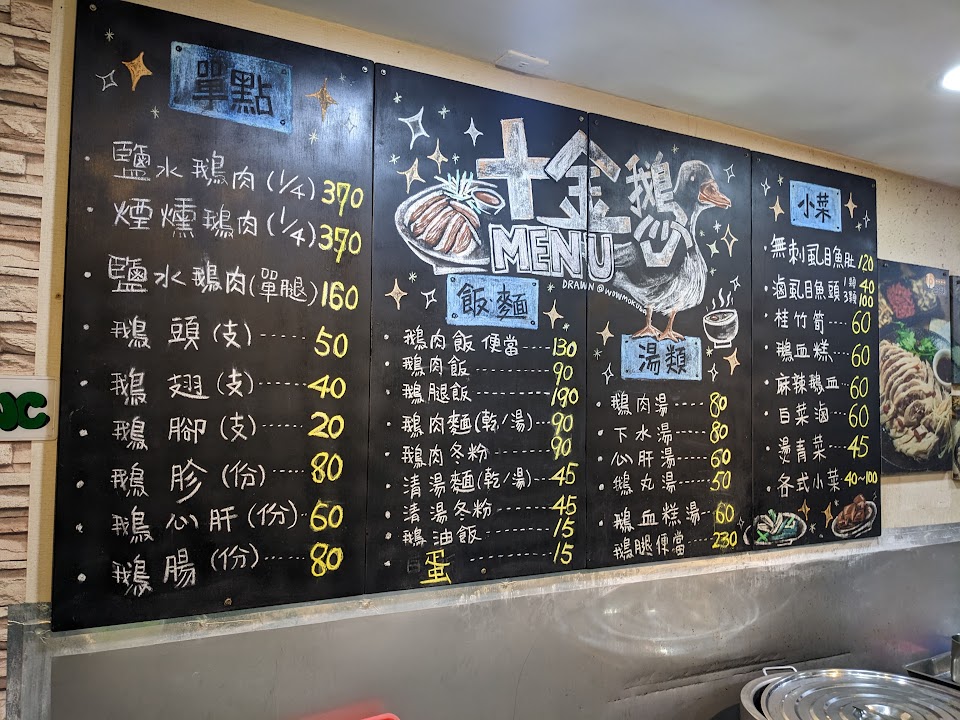 單點
鹽水鵝肉(1/4) 370
煙燻鵝肉(1/4) 370
鹽水鵝肉(單腿) 160
鵝頭(支) 50
鵝翅(支) 40
鵝腳(支) 20
鵝胗(份) 80
鵝心肝(份) 60
鵝腸(份) 80
十金鵝
MENU
DRAWN @WOWMOKUMO
飯麵
鵝肉飯便當 130
鵝肉飯 90
鵝腿飯 190
鵝肉麵(乾/湯) 90
鵝肉冬粉 90
清湯麵(乾/湯) 45
清湯冬粉 45
鵝油飯 15
蛋 15
湯類
鵝肉湯 80
下水湯 80
心肝湯 60
鵝丸湯 50
鵝血糕湯 60
鵝腿便當 230
小菜
無刺虱目魚肚 120
滷虱目魚頭 1顆 40
3顆 100
桂竹筍 60
鵝血糕 60
麻辣鵝血 60
白菜滷 60
燙青菜 45
各式小菜 40~100